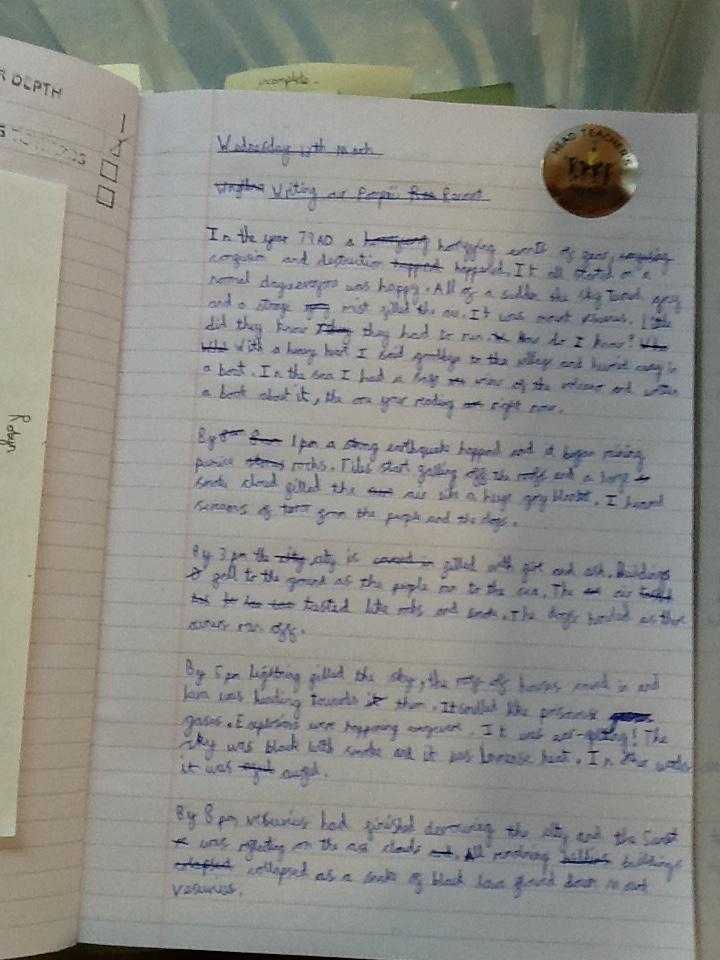 R DEPTH
incomplete
HEAD TEACHER'S
Robyn
Wednesday 10th March
Writing our Pompeii Recount
In the year 79AD a horrifying events of fear,
confusion and destruction happened. It all started on a
normal day, everyone was happy. All of a sudden the sky turned grey
and a strange mist filled the air. It was mount vesuvius. Little
did they know they had to run. How do I know?
With a heavy heart I said goodbye to the village and hurried away in
a boat. In the sea I had a view of the volcano and written
a book about it, the one your reading right now.
By 1pm a strong earthquake happend and it began raining
pumice rocks. Tiles start falling off the roofs and a large
smoke cloud filled the air like a huge grey blanket. I heard
screams of terror from the people and the dogs.
By 3pm the city is filled with fire and ash. Buildings
fell to the ground as the people ran to the sea. The air
tasted like rocks and smoke. The dogs howled as there
owners ran off.
By 5pm lightning filled the sky, the roofs off houses caved in and
lava was heading towards them. It smelled like poisonous
gases. Explosions were happening everywhere. It was ear-splitting! The
sky was black with smoke and it was immense heat. In other words
it was awful.
By 8pm vesuvius had finished devouring the city and the Sunset
was reflecting on the ash clouds. All remaining buildings
collapsed as a snake of black lava flowed down mount
vesuvius.